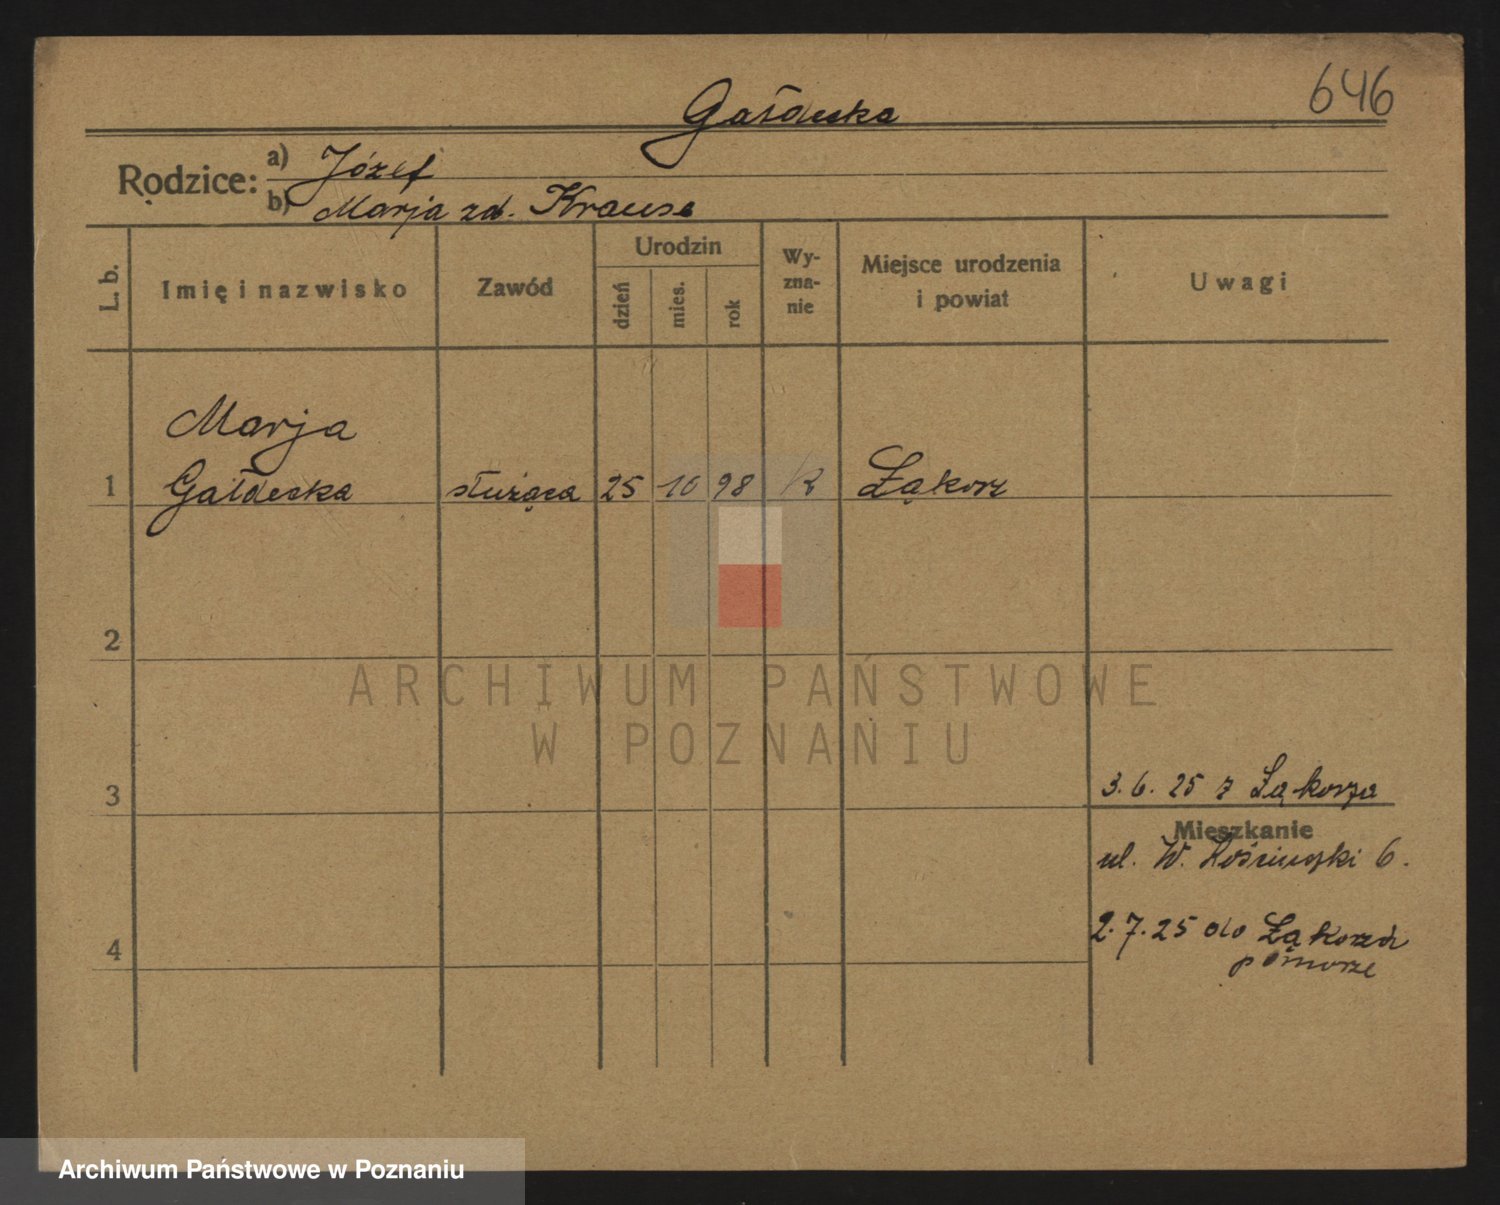 646
Gałdecka
Rodzice:
a) Józef
b) Marja zd. Krause
L. b.
Imię i nazwisko
Zawód
Urodzin
dzień
mies.
rok
Wy-
zna-
nie
Miejsce urodzenia
i powiat
Uwagi
Marja
1 Gałdecka służąca 25 10 98 K Łąkorz
2
ARCHIWUM PAŃSTWOWE
W POZNANIU
3
3. 6. 25 z Łąkorza
Mieszkanie
ul. W. 6.
4
2. 7. 25 do Łąkorza
pomorze
Archiwum Państwowe w Poznaniu